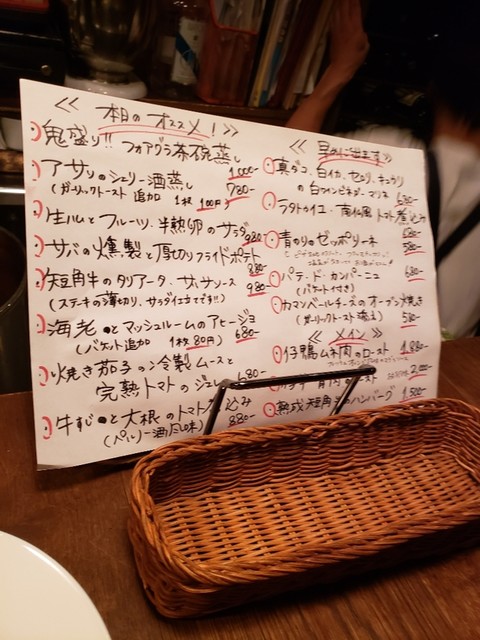 ≪ 本日のオススメ! ≫
鬼盛り!! フォアグラ茶碗蒸し
1,000-
アサリのシェリー酒蒸し
(ガーリックトースト 追加 1枚 100円)
780-
生ハムとフルーツ、半熟卵のサラダ
980-
サバの燻製と厚切りフライドポテト
880-
短角牛のタリアータ、サルサソース
(ステーキの薄切り、サラダ仕立てです!!)
980-
海老とマッシュルームのアヒージョ
(バゲット追加 1枚80円)
680-
焼き茄子の冷製ムースと
完熟トマトのジュレ
680-
牛すじと大根のトマト 込み
(パルノー酒風味)
880-
≪ 早めに出ます ≫
真ダコ、白イカ、セロリ、キュウリ
の白ワインビネガーマリネ
680-
ラタトゥイユ、南仏風トマト煮込み
680-
青のりのゼッポリーネ
580-
パテ・ド・カンパーニュ
(バゲット付き)
680-
カマンベールチーズのオーブン焼き
(ガーリックトースト 添え)
580-
≪ メイン ≫
仔鴨ムネ肉のロースト
1,880-
2,000-
熟成短角牛のハンバーグ
1,500-